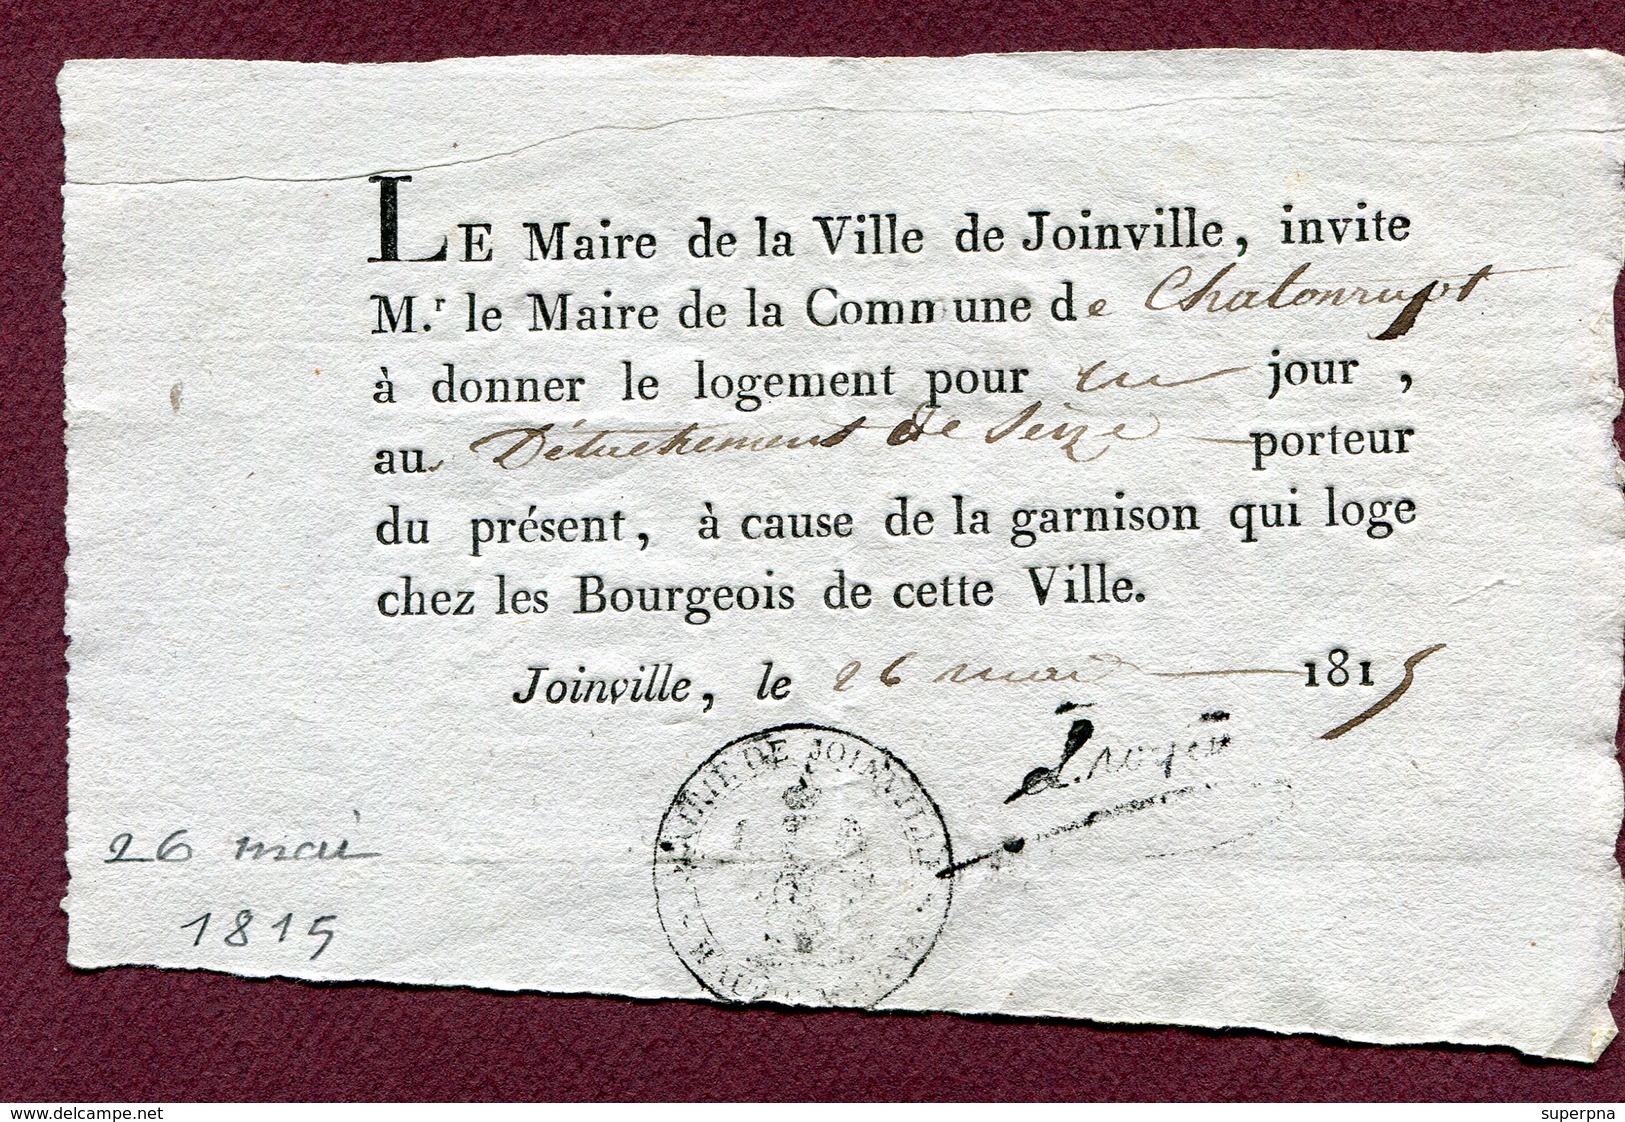 LE Maire de la Ville de Joinville, invite
M.r le Maire de la Commune de Chatonrupt
à donner le logement pour un jour ,
au Détachement de Seize porteur
du présent, à cause de la garnison qui loge
chez les Bourgeois de cette Ville.
Joinville, le 26 mai 1815
MAIRIE DE JOINVILLE
26 mai
1815
www.delcampe.net
superpna